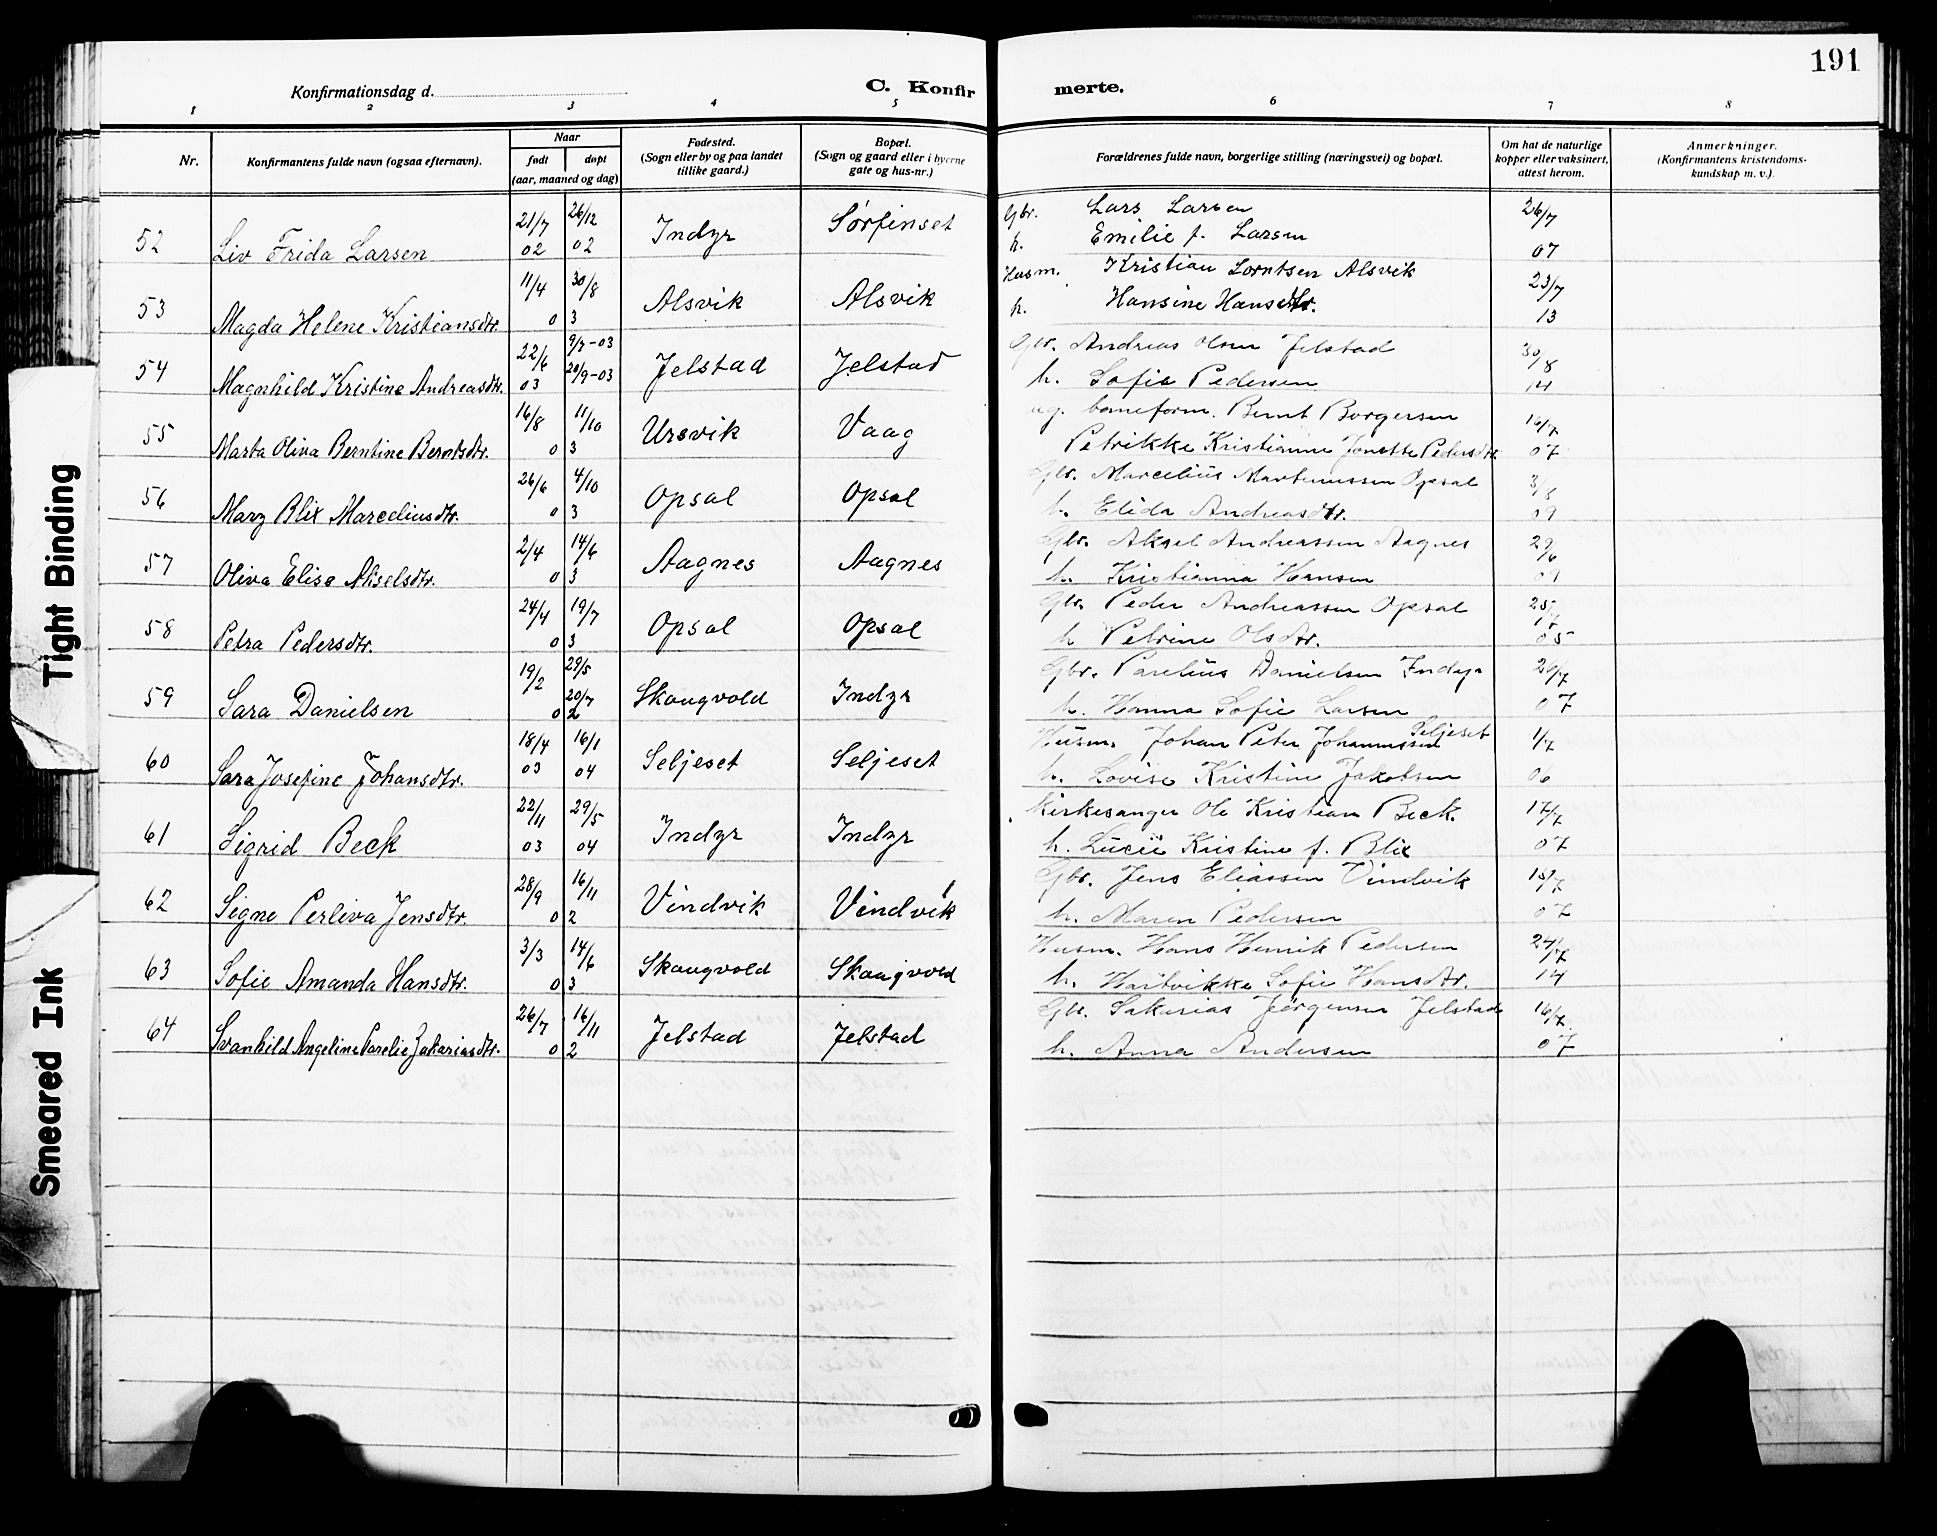 191
Konfirmationsdag d.
C. Konfirmerte.
1 2 3 4 5 6 7 8
Nr.
Konfirmantens fulde navn (ogsaa efternavn).
Naar
født døpt
(aar, maaned og dag)
Fødested.
(Sogn eller by og paa landet
tillike gaard.)
Bopæl.
(Sogn og gaard eller i byerne
gate og hus-nr.)
Forældrenes fulde navn, borgerlige stilling (næringsvei) og bopæl.
Om hat de naturlige
kopper eller vaksinert,
attest herom.
Anmerkninger.
(Konfirmantens kristendoms-
kundskap m. v.).
21/7 26/12 Gbr. Lars Larsen 26/7
52 Liv Frida Larsen 02 02 Indyr Sørfinset h. Emilie f. Larsen 07
11/4 30/8 Husm. Kristian Lorntsen Alsvik 23/7
53 Magda Helene Kristiansdtr. 03 Alsvik Alsvik h. Hansine Hansdtr. 13
22/6 9/7-03 Gbr. Andreas Olsen Jelstad 30/8
54 Magnhild Kristine Andreasdtr. 03 20/9-03 Jelstad Jelstad h. Sofie Pedersen 14
16/8 11/10 ug. barneform. Bernt Borgersen 16/7
55 Marta Oliva Berntine Berntsdtr. 03 Ursvik Vaag Petrikke Kristianne Jonette Pedersdtr 07
26/6 4/10 Gbr. Marcelius Martinussen Opsal 3/8
56 Mary Blix Marceliusdtr. 03 Opsal Opsal h. Elida Andreasdtr. 09
2/4 14/6 Gbr. Aksel Andreassen Aagnes 29/6
57 Oliva Elise Akselsdtr. 03 Aagnes Aagnes h. Kristianna Hansen 09
24/4 19/7 Gbr. Peder Andreassen Opsal 25/7
58 Petra Pedersdtr. 03 Opsal Opsal h Petrine Olsdtr. 05
19/2 29/5 Gbr. Parelius Danielsen Indyr 20/7
59 Sara Danielsen 20/7 02 Skaugvold Indyr h. Hanna Sofie Larsen 07
18/4 16/1 Husm. Johan Peter Johannessen Seljeset 1/7
60 Sara Josefine Johansdtr. 03 04 Seljeset Seljeset h. Lovise Kristine Jakobsen 06
22/11 29/5 Kirkesanger Ole Kristian Beck. 17/7
61 Sigrid Beck 03 04 Indyr Indyr h. Lucie Kristine f. Blix 07
28/9 16/11 Gbr. Jens Eliassen Vindvik 15/7
62 Signe Perliva Jensdtr. 02 Vindvik Vindvik h. Maren Pedersen 07
3/3 14/6 Husm. Hans Henrik Pedersen 24/7
63 Sofie Amanda Hansdtr. 03 Skaugvold Skaugvold h. Hartvikke Sofie Hansdtr. 14
26/7 16/11 Gbr. Sakarias Jørgensen Jelstad 16/7
64 Svanhild Angeline Parelie Zakariasdtr. 02 Jelstad Jelstad h. Anna Andersen 07
Tight Binding
Smeared Ink